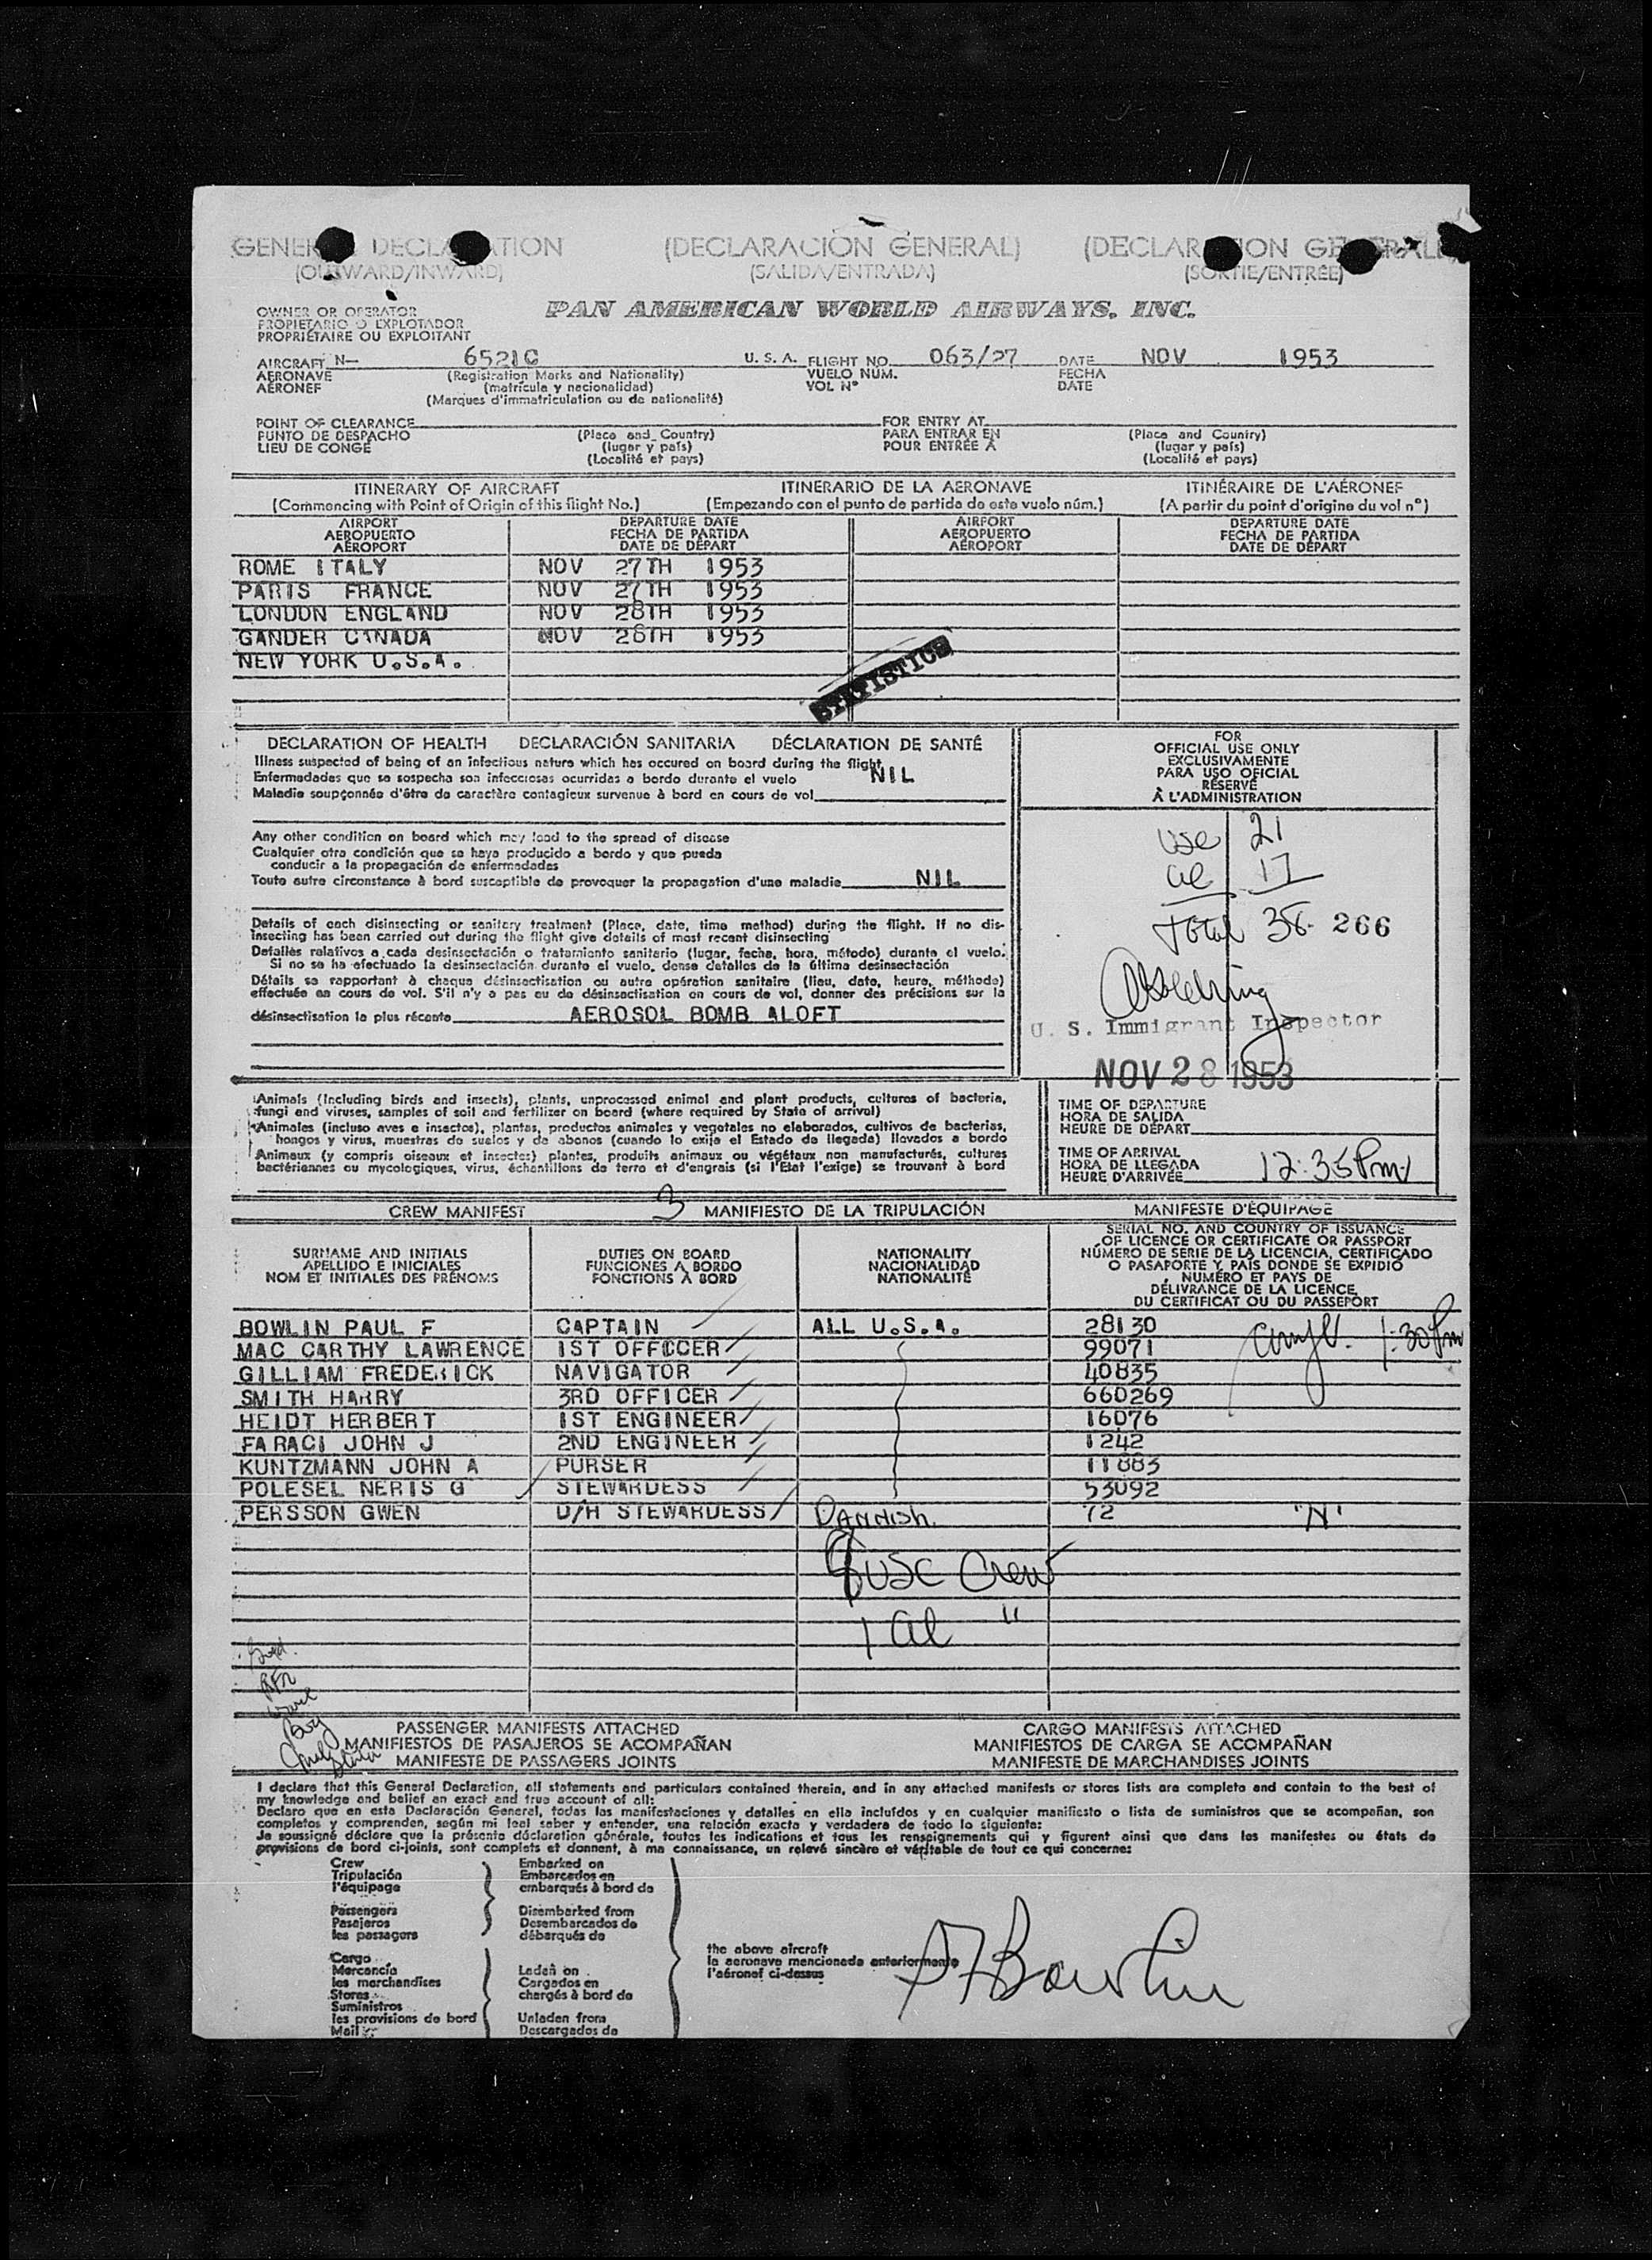 GENERAL DECLARATION (DECLARACIÓN GENERAL) (DECLARATION GENERALE)
(OUTWARD/INWARD) (SALIDA/ENTRADA) (SORTIE/ENTRÉE)
OWNER OR OPERATOR
PROPIETARIO O EXPLOTADOR
PROPRIÉTAIRE OU EXPLOITANT
PAN AMERICAN WORLD AIRWAYS, INC.
AIRCRAFT N— 6521C U. S. A. FLIGHT NO. 063/27 DATE NOV 1953
AERONAVE (Registration Marks and Nationality) VUELO NÚM. FECHA
AÉRONEF (matrícula y nacionalidad) VOL Nº DATE
(Marques d'immatriculation ou de nationalité)
POINT OF CLEARANCE FOR ENTRY AT
PUNTO DE DESPACHO (Place and Country) PARA ENTRAR EN (Place and Country)
LIEU DE CONGÉ (lugar y país) POUR ENTRÉE À (lugar y país)
(Localité et pays) (Localité et pays)
ITINERARY OF AIRCRAFT ITINERARIO DE LA AERONAVE ITINÉRAIRE DE L'AÉRONEF
(Commencing with Point of Origin of this flight No.) (Empezando con el punto de partida de este vuelo núm.) (A partir du point d'origine du vol nº)
AIRPORT DEPARTURE DATE AIRPORT DEPARTURE DATE
AEROPUERTO FECHA DE PARTIDA AEROPUERTO FECHA DE PARTIDA
AÉROPORT DATE DE DÉPART AÉROPORT DATE DE DÉPART
ROME ITALY NOV 27TH 1953
PARIS FRANCE NOV 27TH 1953
LONDON ENGLAND NOV 28TH 1953
GANDER CANADA NOV 28TH 1953
NEW YORK U.S.A.
STATISTICS
DECLARATION OF HEALTH DECLARACIÓN SANITARIA DÉCLARATION DE SANTÉ
Illness suspected of being of an infectious nature which has occured on board during the flight
Enfermedades que se sospecha son infecciosas ocurridas a bordo durante el vuelo NIL
Maladie soupçonnée d'être de caractère contagieux survenue à bord en cours de vol
Any other condition on board which may lead to the spread of disease
Cualquier otra condición que se haya producido a bordo y que pueda
conducir a la propagación de enfermedades
Toute autre circonstance à bord susceptible de provoquer la propagation d'une maladie NIL
Details of each disinsecting or sanitary treatment (Place, date, time method) during the flight. If no dis-
insecting has been carried out during the flight give details of most recent disinsecting
Detalles relativos a cada desinsectación o tratamiento sanitario (lugar, fecha, hora, método) durante el vuelo.
Si no se ha efectuado la desinsectación durante el vuelo, dense detalles de la última desinsectación
Détails se rapportant à chaque désinsectisation ou autre opération sanitaire (lieu, date, heure, méthode)
effectuée en cours de vol. S'il n'y a pas eu de désinsectisation en cours de vol, donner des précisions sur la
désinsectisation la plus récente AEROSOL BOMB ALOFT
FOR
OFFICIAL USE ONLY
EXCLUSIVAMENTE
PARA USO OFICIAL
RÉSERVÉ
À L'ADMINISTRATION
USC 21
al 17
Total 38. 266
U. S. Immigrant Inspector
NOV 28 1953
Animals (Including birds and insects), plants, unprocessed animal and plant products, cultures of bacteria,
fungi and viruses, samples of soil and fertilizer on board (where required by State of arrival)
Animales (incluso aves e insectos), plantas, productos animales y vegetales no elaborados, cultivos de bacterias,
hongos y virus, muestras de suelos y de abonos (cuando lo exija el Estado de llegada) llevados a bordo
Animaux (y compris oiseaux et insectes) plantes, produits animaux ou végétaux non manufacturés, cultures
bactériennes ou mycologiques, virus, échantillons de terre et d'engrais (si l'État l'exige) se trouvant à bord
TIME OF DEPARTURE
HORA DE SALIDA
HEURE DE DÉPART
TIME OF ARRIVAL
HORA DE LLEGADA
HEURE D'ARRIVÉE 12:35 Pm
CREW MANIFEST 3 MANIFIESTO DE LA TRIPULACIÓN MANIFESTE D'ÉQUIPAGE
SURNAME AND INITIALS
APELLIDO E INICIALES
NOM ET INITIALES DES PRÉNOMS
DUTIES ON BOARD
FUNCIONES A BORDO
FONCTIONS À BORD
NATIONALITY
NACIONALIDAD
NATIONALITÉ
SERIAL NO. AND COUNTRY OF ISSUANCE
OF LICENCE OR CERTIFICATE OR PASSPORT
NÚMERO DE SERIE DE LA LICENCIA, CERTIFICADO
O PASAPORTE Y PAÍS DONDE SE EXPIDIÓ
NUMÉRO ET PAYS DE
DÉLIVRANCE DE LA LICENCE,
DU CERTIFICAT OU DU PASSEPORT
BOWLIN PAUL F CAPTAIN ALL U.S.A. 28130
MAC CARTHY LAWRENCE 1ST OFFICER 99071 1:30 Pm
GILLIAM FREDERICK NAVIGATOR 40835
SMITH HARRY 3RD OFFICER 660269
HEIDT HERBERT 1ST ENGINEER 16076
FARACI JOHN J 2ND ENGINEER 1242
KUNTZMANN JOHN A PURSER 11883
POLESEL NERIS G STEWARDESS 53092
PERSSON GWEN D/H STEWARDESS DANNISH 72 "N"
8 USC Crew
1 al "
PASSENGER MANIFESTS ATTACHED CARGO MANIFESTS ATTACHED
MANIFIESTOS DE PASAJEROS SE ACOMPAÑAN MANIFIESTOS DE CARGA SE ACOMPAÑAN
MANIFESTE DE PASSAGERS JOINTS MANIFESTE DE MARCHANDISES JOINTS
I declare that this General Declaration, all statements and particulars contained therein, and in any attached manifests or stores lists are complete and contain to the best of
my knowledge and belief an exact and true account of all:
Declaro que en esta Declaración General, todas las manifestaciones y detalles en ella incluídos y en cualquier manifiesto o lista de suministros que se acompañan, son
completos y comprenden, según mi leal saber y entender, una relación exacta y verdadera de todo lo siguiente:
Je soussigné déclare que la présente déclaration générale, toutes les indications et tous les renseignements qui y figurent ainsi que dans les manifestes ou états de
provisions de bord ci-joints, sont complets et donnent, à ma connaissance, un relevé sincère et véritable de tout ce qui concerne:
Crew Embarked on
Tripulación Embarcados en
l'équipage embarqués à bord de
Passengers Disembarked from
Pasajeros Desembarcados de
les passagers débarqués de
the above aircraft
la aeronave mencionada anteriormente
l'aéronef ci-dessus
P F Bowlin
Cargo
Mercancía Laden on
les marchandises Cargados en
Stores chargés à bord de
Suministros
les provisions de bord Unladen from
Mail Descargados de